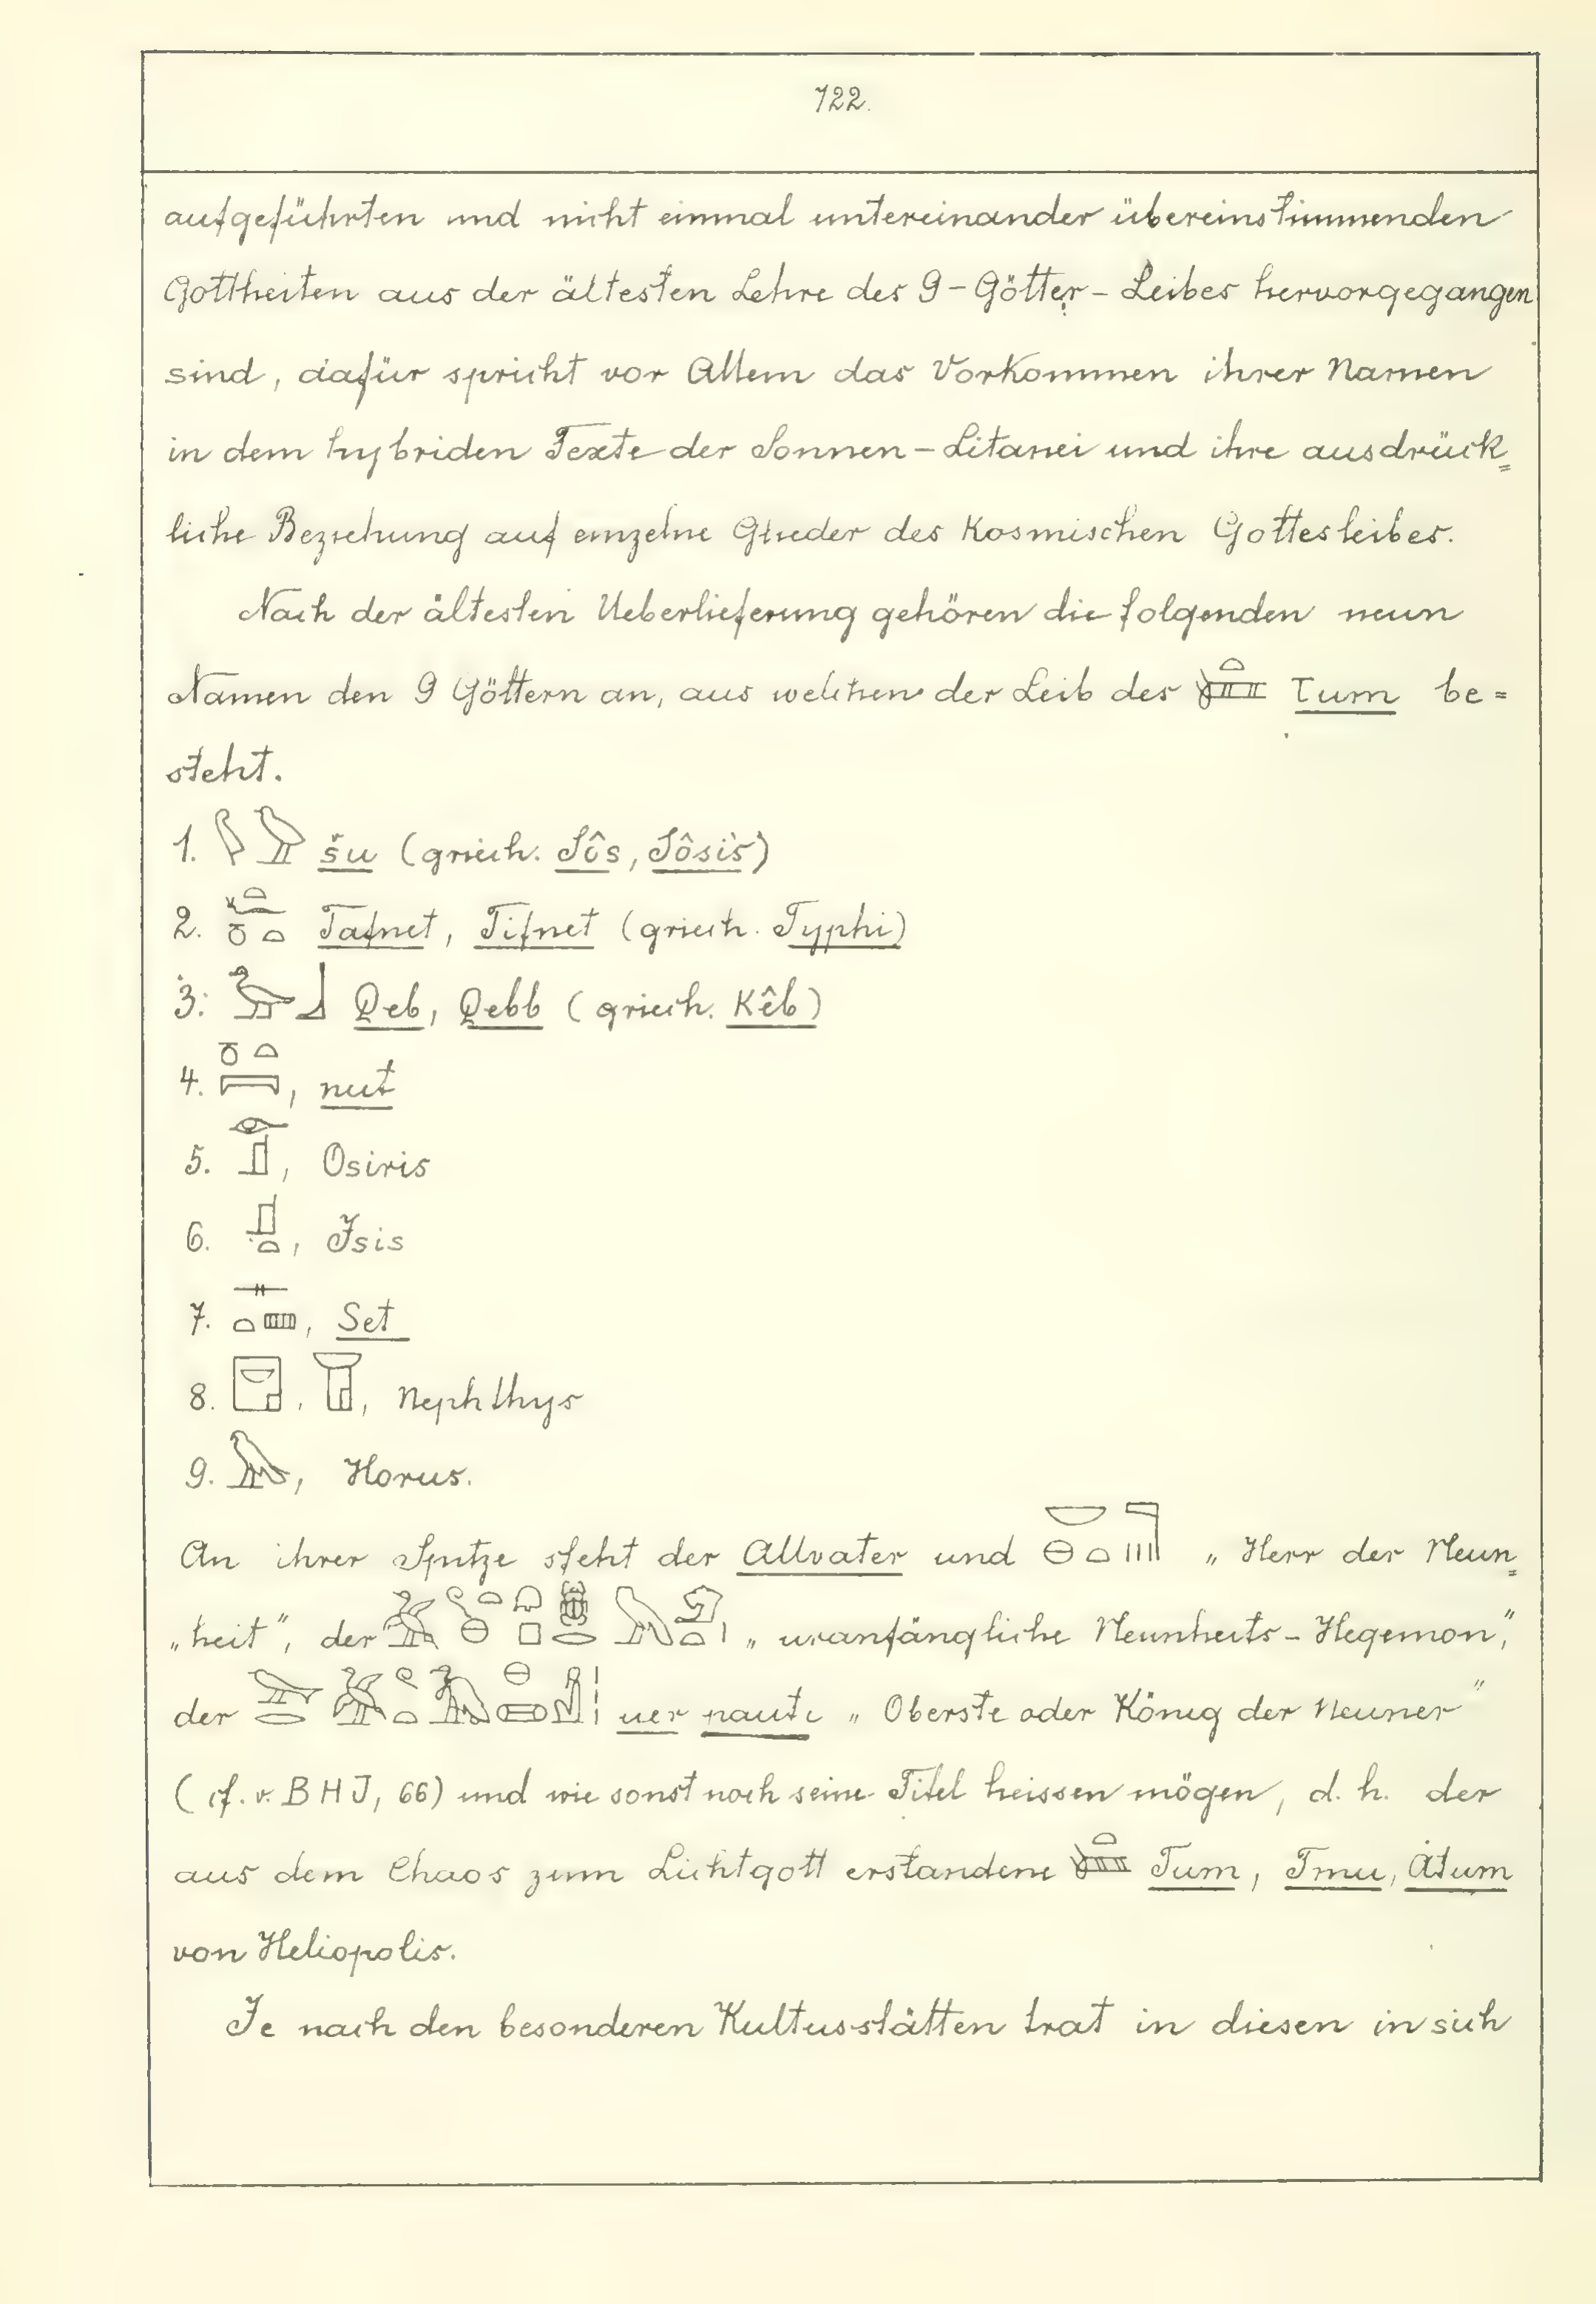 722.
aufgeführten und nicht einmal untereinander übereinstimmenden
Gottheiten aus der ältesten Lehre des 9-Götter-Leibes hervorgegangen
sind, dafür spricht vor Allem das Vorkommen ihrer Namen
in dem hybriden Texte der Sonnen-Litanei und ihre ausdrück=
liche Beziehung auf einzelne Glieder des kosmischen Gottesleibes.
Nach der ältesten Ueberlieferung gehören die folgenden neun
Namen den 9 Göttern an, aus welchen der Leib des Tum be=
steht.
1. šu (griech. Sôs, Sôsis)
2. Tafnet, Tifnet (griech. Typhi)
3. Qeb, Qebb (griech. Kêb)
4. , nut
5. , Osiris
6. , Isis
7. , Set
8. , , Nephthys
9. , Horus.
An ihrer Spitze steht der Allvater und „Herr der Neun=
„heit", der „uranfängliche Neunheits-Hegemon",
der uer paute „Oberste oder König der Neuner"
(cf. v. BHI, 66) und wie sonst noch seine Titel heissen mögen, d. h. der
aus dem Chaos zum Lichtgott erstandene Tum, Tmu, Atum
von Heliopolis.
Je nach den besonderen Kultusstätten trat in diesen in sich